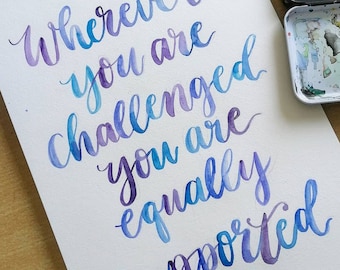 Wherever
you are
challenged
you are
equally
supported